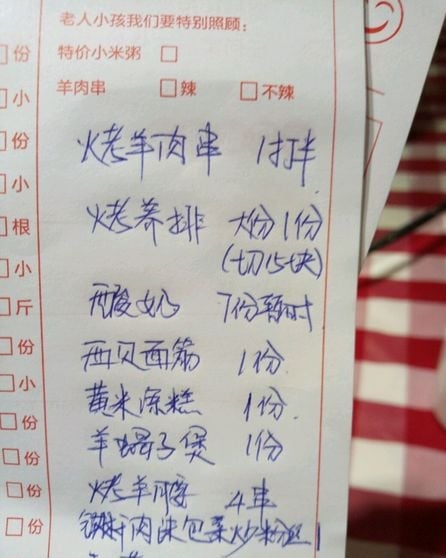 老人小孩我们要特别照顾：
份 特价小米粥 □
小 羊肉串 □辣 □不辣
份 烤羊肉串 1打半
小
根 烤养排 大份1份
小 (切15块)
斤 酸奶 7份暂时
份 西贝面筋 1份
小 黄米凉糕 1份
份
份 羊蝎子煲 1份
份 烤羊腰 4串
份 肉沫包菜炒粉丝1